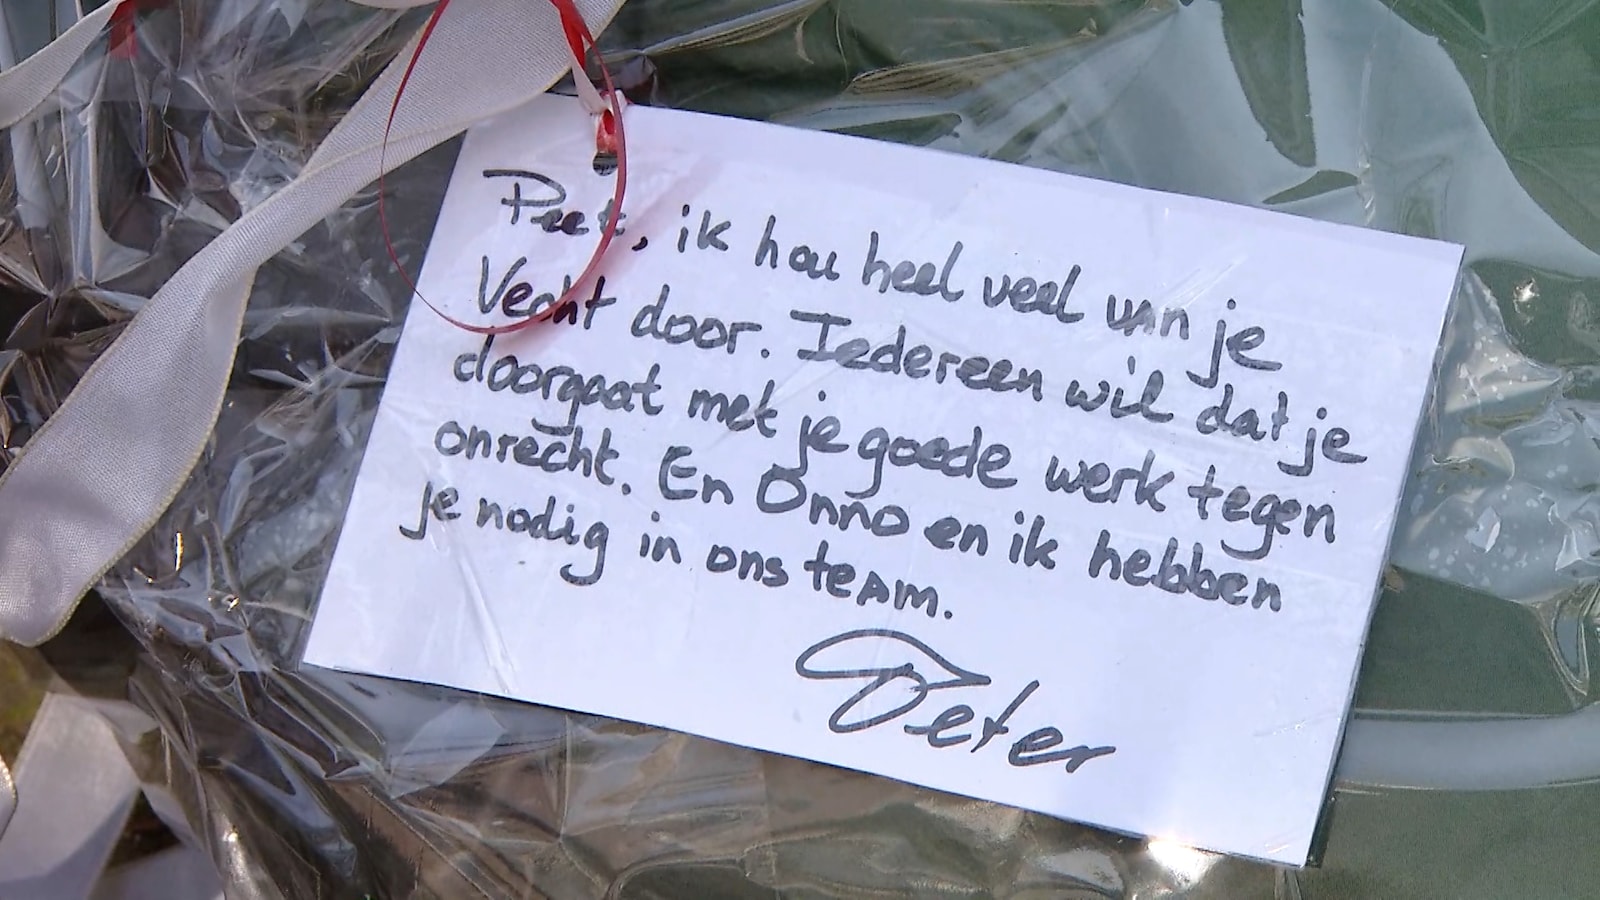 Peet, ik hou heel veel van je
Vecht door. Iedereen wil dat je
doorgaat met je goede werk tegen
onrecht. En Onno en ik hebben
je nodig in ons team.
Peter